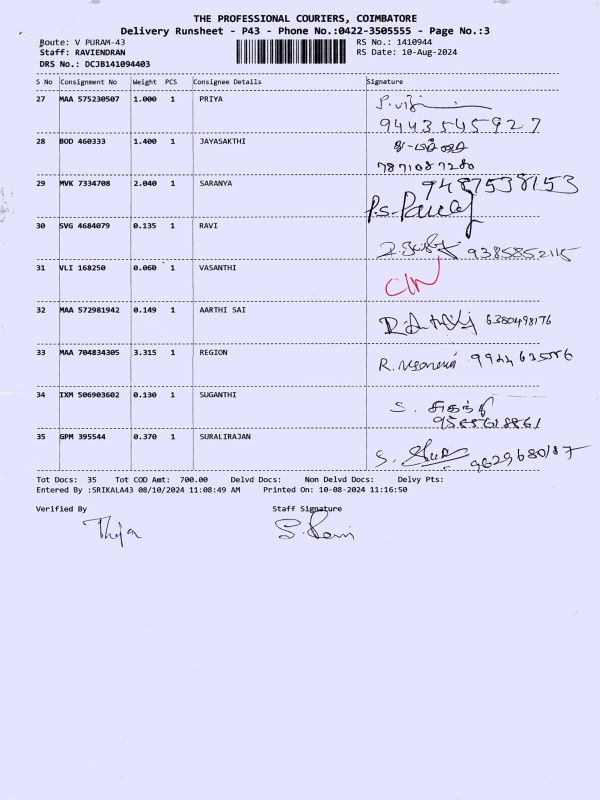 THE PROFESSIONAL COURIERS, COIMBATORE
Delivery Runsheet - P43 - Phone No.:0422-3505555 - Page No.:3
Route: V PURAM-43 RS No.: 1410944
Staff: RAVIENDRAN RS Date: 10-Aug-2024
DRS No.: DCJB141094403
S No Consignment No Weight PCS Consignee Details Signature
27 MAA 575230507 1.000 1 PRIYA
9443545927
28 BOD 460333 1.400 1 JAYASAKTHI
7871087280
29 MVK 7334708 2.040 1 SARANYA 9487538153
30 SVG 4684079 0.135 1 RAVI
9385852115
31 VLI 168250 0.060 1 VASANTHI
32 MAA 572981942 0.149 1 AARTHI SAI
6380498176
33 MAA 704834305 3.315 1 REGION
R.
34 IXM 506903602 0.130 1 SUGANTHI
S. சுகந்தி
35 GPM 395544 0.370 1 SURALIRAJAN
S. 9629680187
Tot Docs: 35 Tot COD Amt: 700.00 Delvd Docs: Non Delvd Docs: Delvy Pts:
Entered By :SRIKALA43 08/10/2024 11:08:49 AM Printed On: 10-08-2024 11:16:50
Verified By Staff Signature
S. Ravi